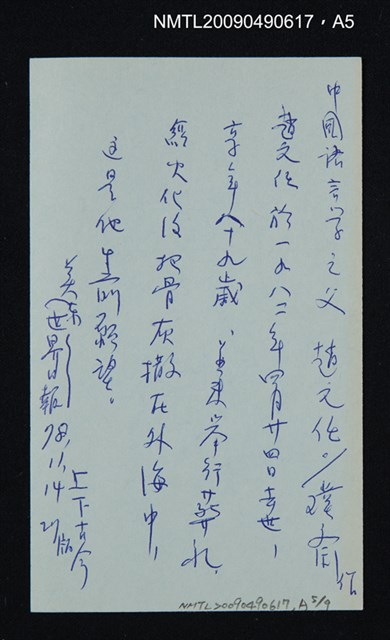 NMTL20090490617，A5
中國語言学之父 趙元任//璞君作
趙元任於一九八二年四月廿四日去世，
享年八十九歲，並未舉行葬礼，
經火化後把骨灰撒在外海中，
这是他生前願望。
美東世界日報 78,11,14 上下古今 21版
NMTL20090490617, A5/9